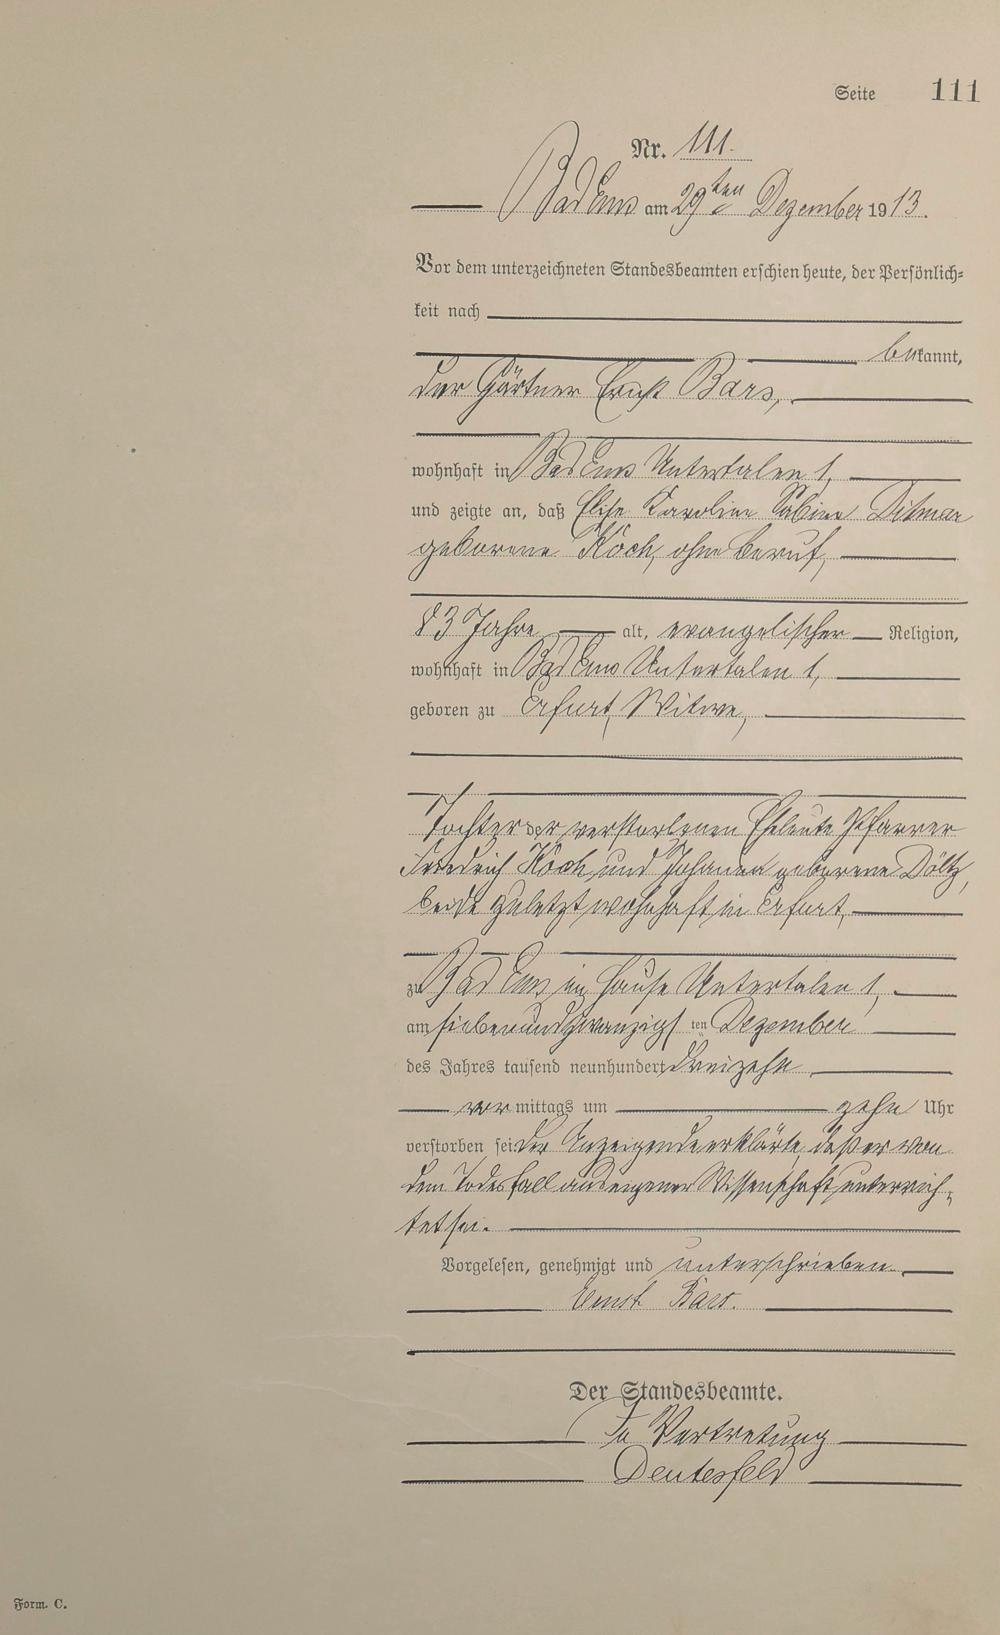 Seite 111
Nr. 111.
Bad Ems am 29ten Dezember 1913.
Vor dem unterzeichneten Standesbeamten erschien heute, der Persönlich-
keit nach
bekannt,
der Gärtner Ernst Bars,
wohnhaft in Bad Ems Untertalen 1,
und zeigte an, daß Elise Karoline Sabine Ditmar
geborene Koch, ohne Beruf,
83 Jahre alt, evangelischer Religion,
wohnhaft in Bad Ems Untertalen 1,
geboren zu Erfurt, Witwe,
Tochter der verstorbenen Eheleute Pfarrer
Friedrich Koch und Johanna geborene Döltz,
beide zuletzt wohnhaft in Erfurt,
zu Bad Ems im Hause Untertalen 1,
am siebenundzwanzigsten Dezember
des Jahres tausend neunhundert dreizehn
vormittags um zehn Uhr
verstorben sei. Der Anzeigende erklärte, daß er von
dem Todesfall aus eigener Wissenschaft unterrich-
tet sei.
Vorgelesen, genehmigt und unterschrieben.
Ernst Bars.
Der Standesbeamte.
In Vertretung
Deutesfeld
Form. C.